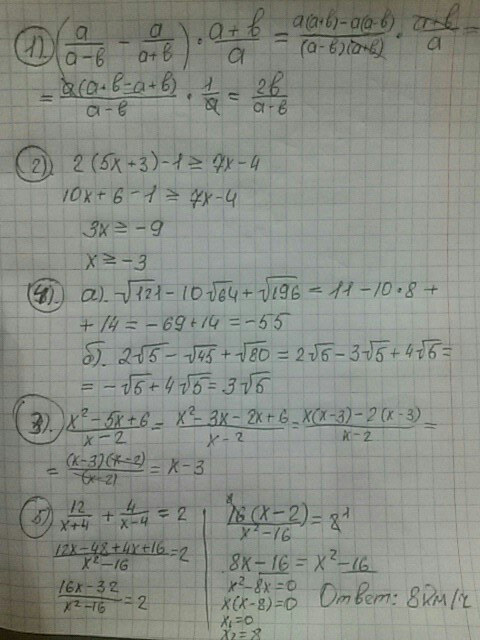 1) (a/(a-в) - a/(a+в)) · (a+в)/a = (a(a+в)-a(a-в))/((a-в)(a+в)) · (a+в)/a =
= a(a+в-a+в)/(a-в) · 1/a = 2в/(a-в)
2) 2(5x+3)-1 ≥ 7x-4
10x+6-1 ≥ 7x-4
3x ≥ -9
x ≥ -3
4). а). √121 - 10√64 + √196 = 11 - 10·8 +
+ 14 = -69+14 = -55
б). 2√5 - √45 + √80 = 2√5 - 3√5 + 4√5 =
= -√5 + 4√5 = 3√5
3). (x²-5x+6)/(x-2) = (x²-3x-2x+6)/(x-2) = (x(x-3)-2(x-3))/(x-2) =
= (x-3)(x-2)/(x-2) = x-3
5) 12/(x+4) + 4/(x-4) = 2
(12x-48+4x+16)/(x²-16) = 2
(16x-32)/(x²-16) = 2
16(x-2)/(x²-16) = 2 1
8x-16 = x²-16
x²-8x=0
x(x-8)=0
x₁=0
x₂=8
Ответ: 8км/ч